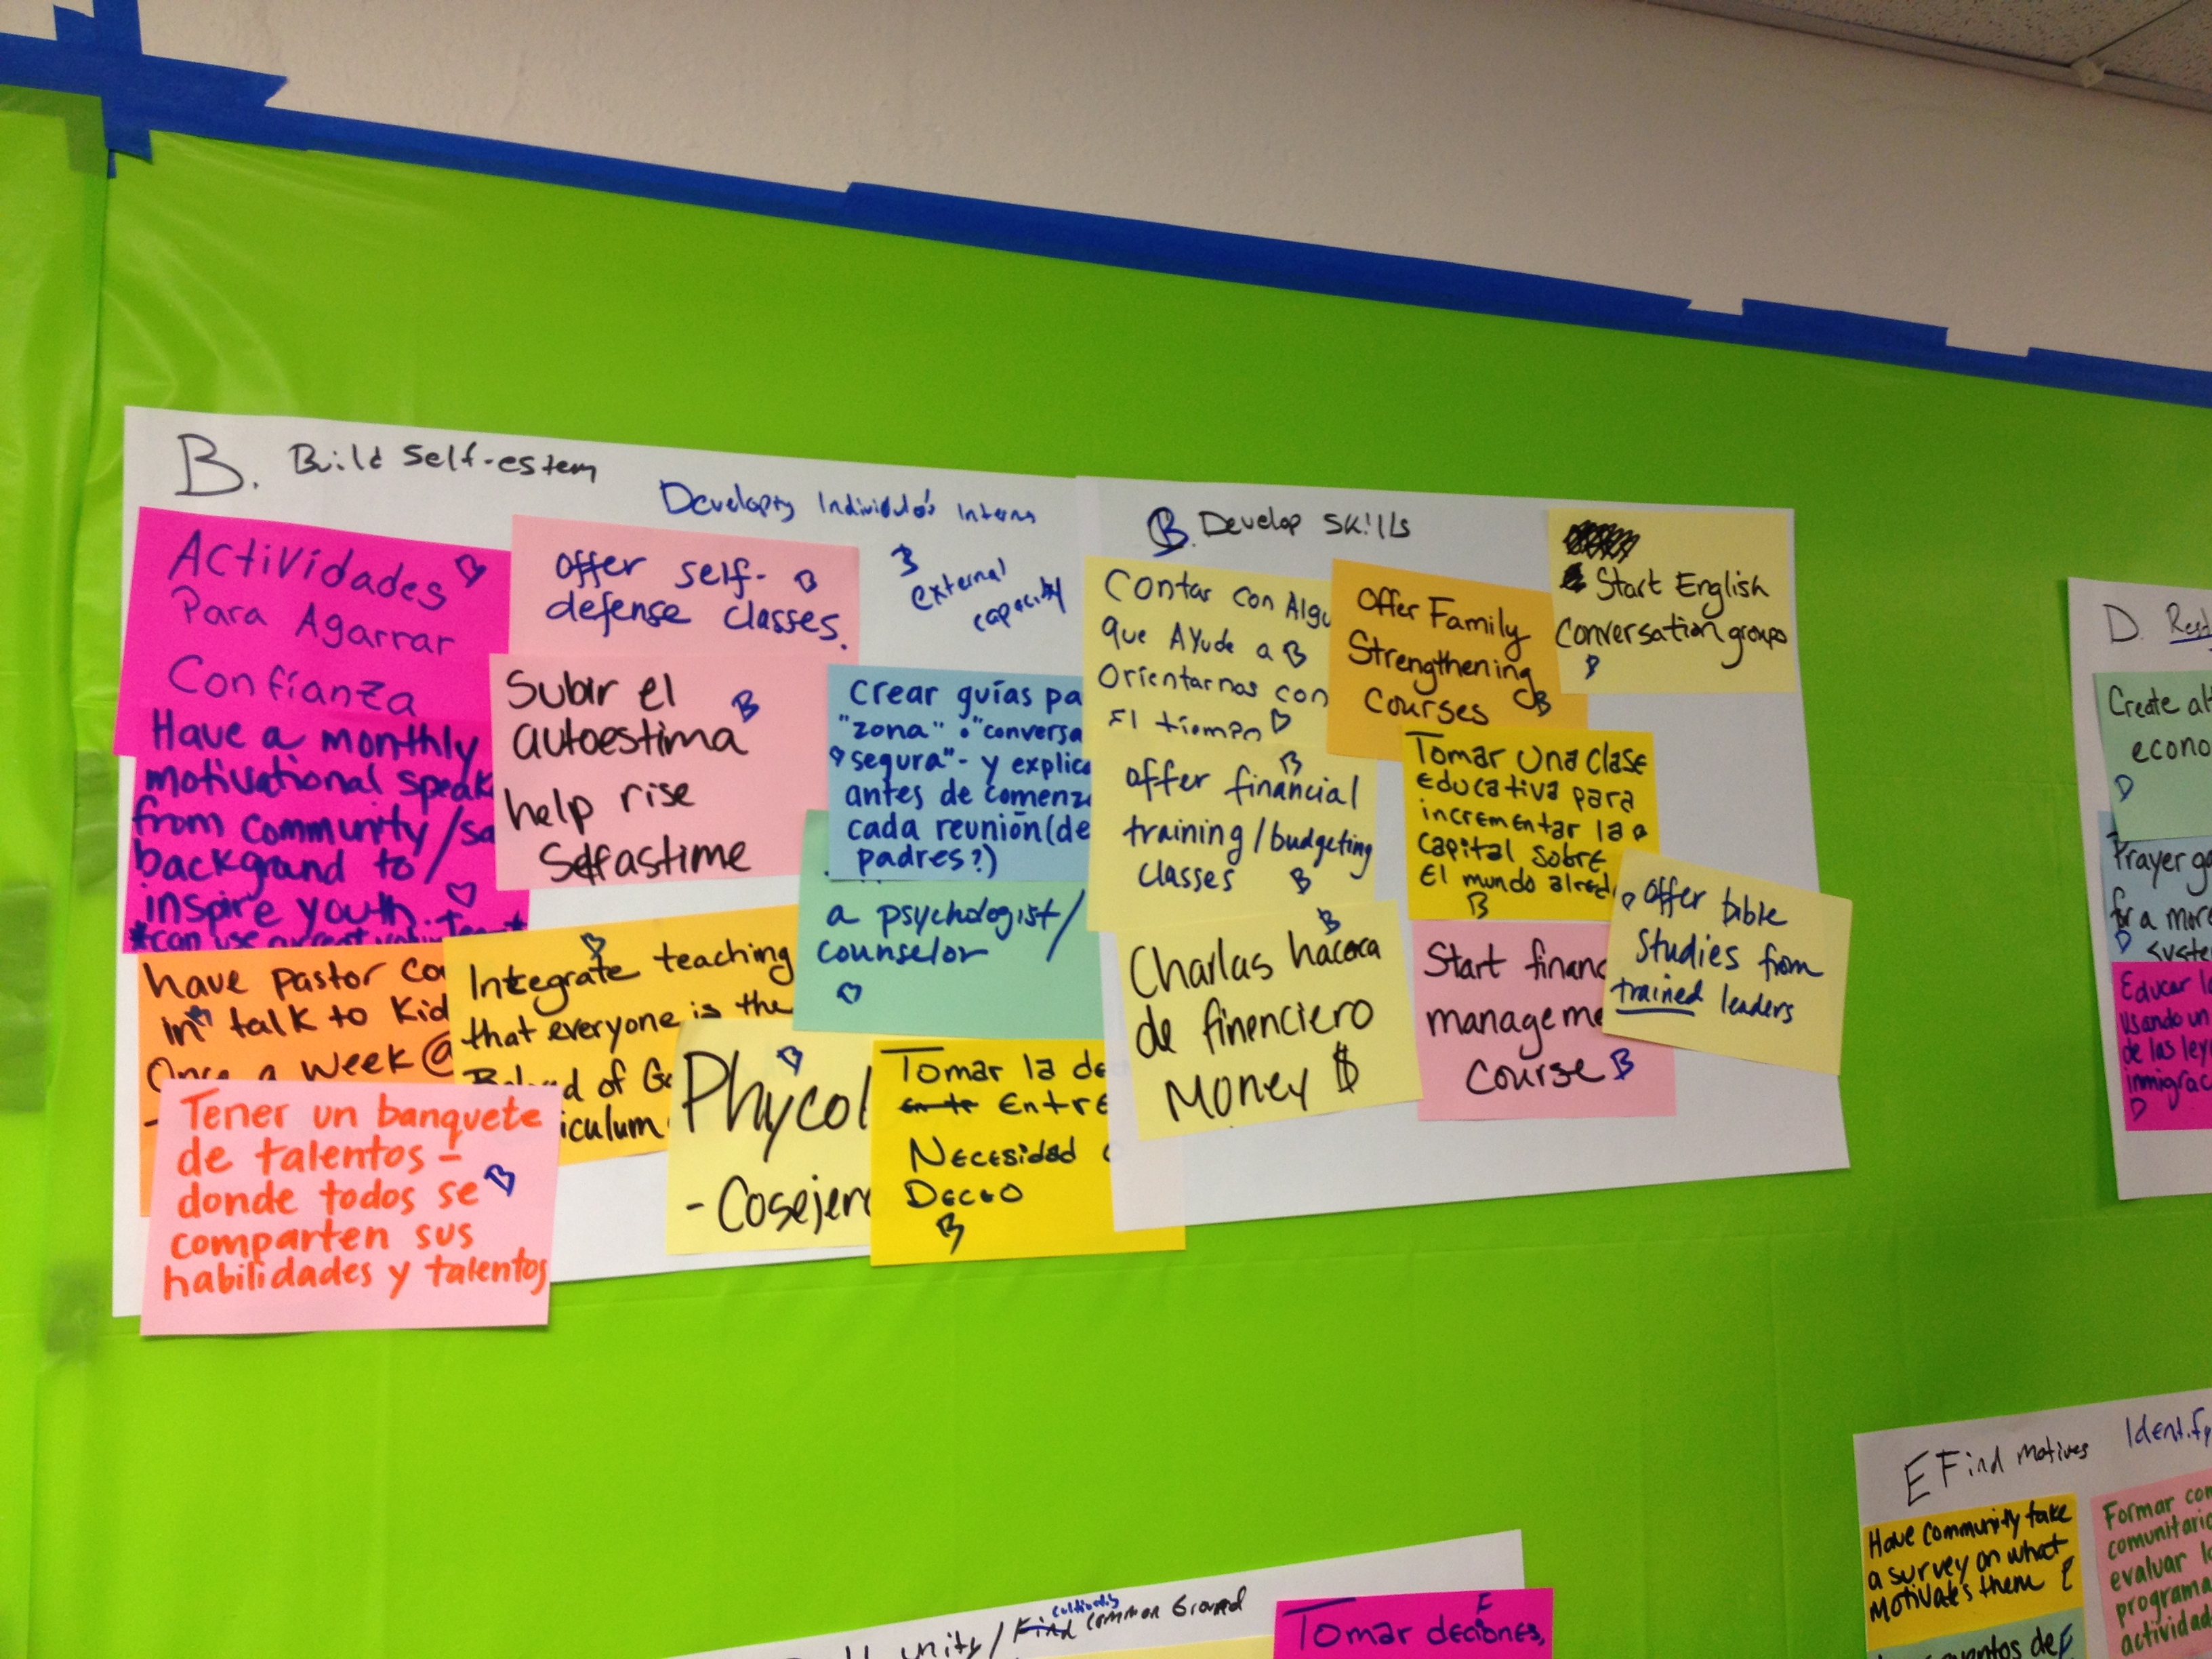 B. Build Self-estem
Developing Individual's Interna
3
external
capacity
Actividades
Para Agarrar
Confianza
Have a monthly
motivational speak
from community/sa
backgrand to
inspire youth.
*can use current
offer self-
defense classes.
Subir el
autoestima B
help rise
Selfastime
Crear guías pa
"zona" o "conversa
segura"- y explica
antes de comenza
cada reunión (de
padres?)
a psychologist/
counselor
have pastor co
in talk to Kid
Once a week @
Integrate teaching
that everyone is the
of Go
iculum
Tener un banquete
de talentos -
donde todos se
comparten sus
habilidades y talentos
Phycol
- Cosejero
Tomar la de
Entre
Necesidad
Deceo
B
B. Develop Skills
Contar con Algu
que Ayude a B
Orientarnos con
El tiempo
Offer Family
Strengthening
Courses B
Start English
Conversation groups
B
offer financial
training/budgeting
classes B
Tomar Una Clase
Educativa para
incrementar la
Capital Sobre
El mundo alred
B
B
Charlas hacerca
de finenciero
Money $
Start financ
manageme
Course B
offer bible
Studies from
trained leaders
D. Rest
Create alt
econo
D
Prayer ga
for a more
D syste
Educar lo
Usando un
de las ley
inmigrac
D
E Find motives Identify
Have Community take
a survey on what
Motivates them E
Formar com
comunitario
evaluar lo
programa
actividad
entos de E
unity/ Find cultivate common Ground
F
Tomar deciones,